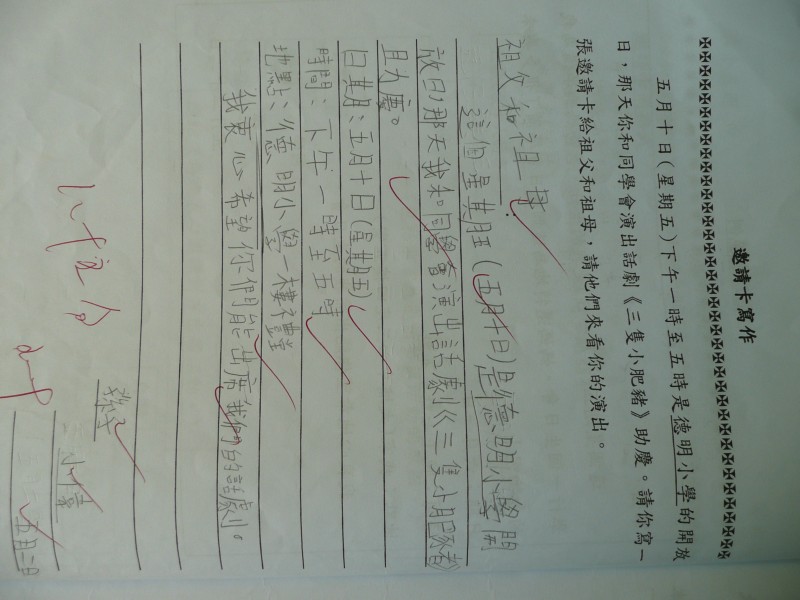 邀請卡寫作
五月十日(星期五)下午一時至五時是德明小學的開放
日，那天你和同學會演出話劇《三隻小肥豬》助慶。請你寫一
張邀請卡給祖父和祖母，請他們來看你的演出。
祖父和祖母：
這個星期五(五月十日)是德明小學開
放日，那天我和同學會演出話劇《三隻小肥豬》
且大慶。
日期：五月十日(星期五)
時間：下午一時至五時
地點：德明小學一樓禮堂
我衷心希望你們能出席我們的話劇。
五月二日